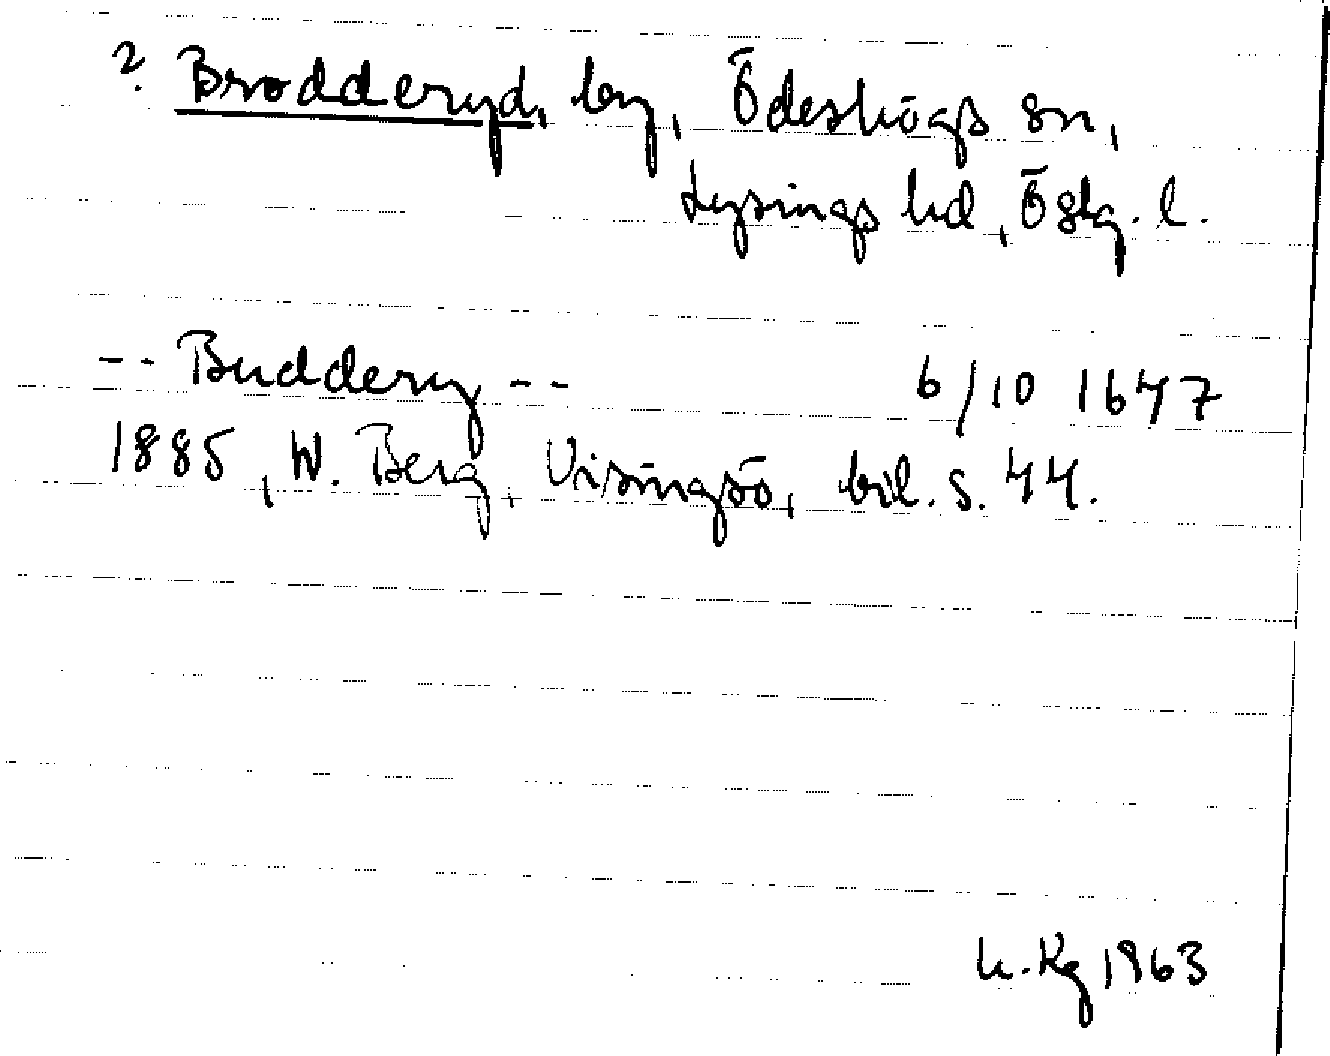 ? Brodderyd, by, Ödeshögs sn,
Lysings hd, Östg. l.
-- Buddery -- 6/10 1647
1885, W. Berg, Visingsö, bil. s. 44.
K. Kg 1963